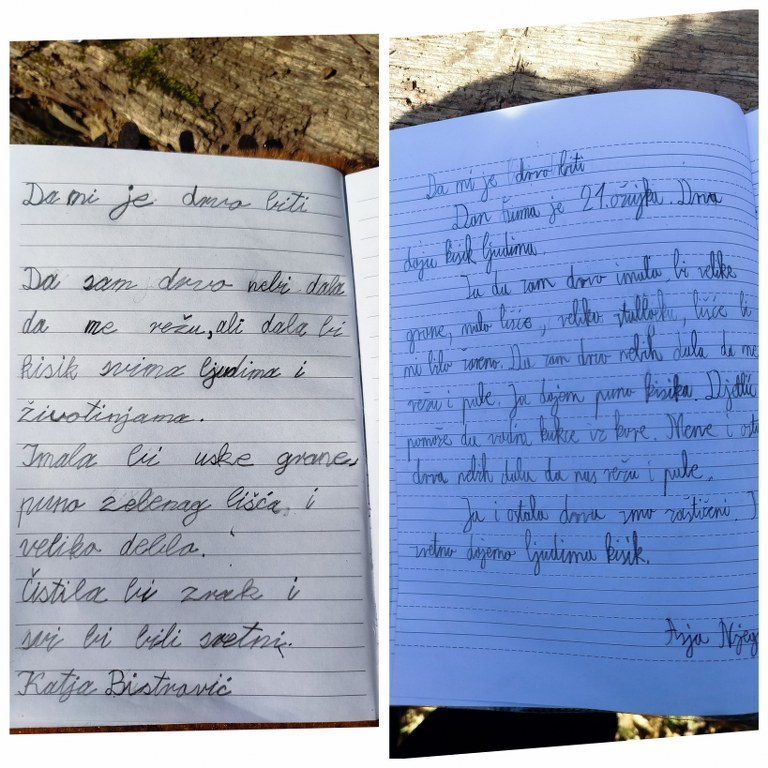 Da mi je drvo biti
Da sam drvo nebi dala
da me režu, ali dala bi
kisik svima ljudima i
životinjama.
Imala bi uske grane,
puno zelenog lišća, i
veliko deblo.
Čistila bi zrak i
svi bi bili sretni.
Katja Bistrović
Da mi je drvo biti
Dan šuma je 21. ožujka. Drva
daju kisik ljudima
Ja da sam drvo imala bi velike
grane, malo lišće, veliko, lišće bi
mi bilo šareno. Da sam drvo nebih dala da me
režu i pale. Ja dajem puno kisika. Djetlić
pomaže da vadim kukce iz kore. Mene i osta
drva nebih dala da nas režu i pale.
Ja i ostala drva smo zaštićeni.
sretno dajemo ljudima kisik.
Asja Njeg